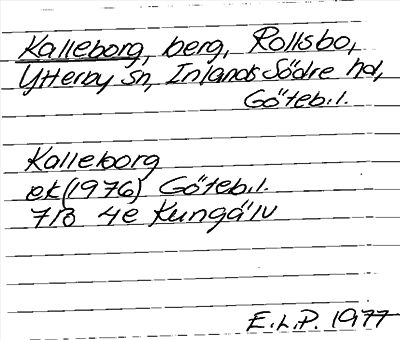 Kalleborg, berg, Rollsbo,
Ytterby sn, Inlands Södre hd,
Göteb.l.
Kalleborg
ek(1976) Göteb.l.
7B 4e Kungälv
E.L.P. 1977